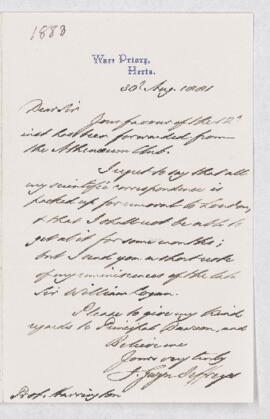 1883
Ware Priory,
Herts.
30th Aug. 1881
Dear Sir
Your favour of the 12th
inst has been forwarded from
the Athenaeum Club.
I regret to say that all
my scientific correspondence is
packed up for removal to London,
& that I shall not be able to
get at it for some months;
but I send you a short note
of my reminiscences of the late
Sir William Logan.
Please to give my kind
regards to Principal Dawson, and
Believe me
Yours very truly
J. Gwyn Jeffreys
Prof. Harrington